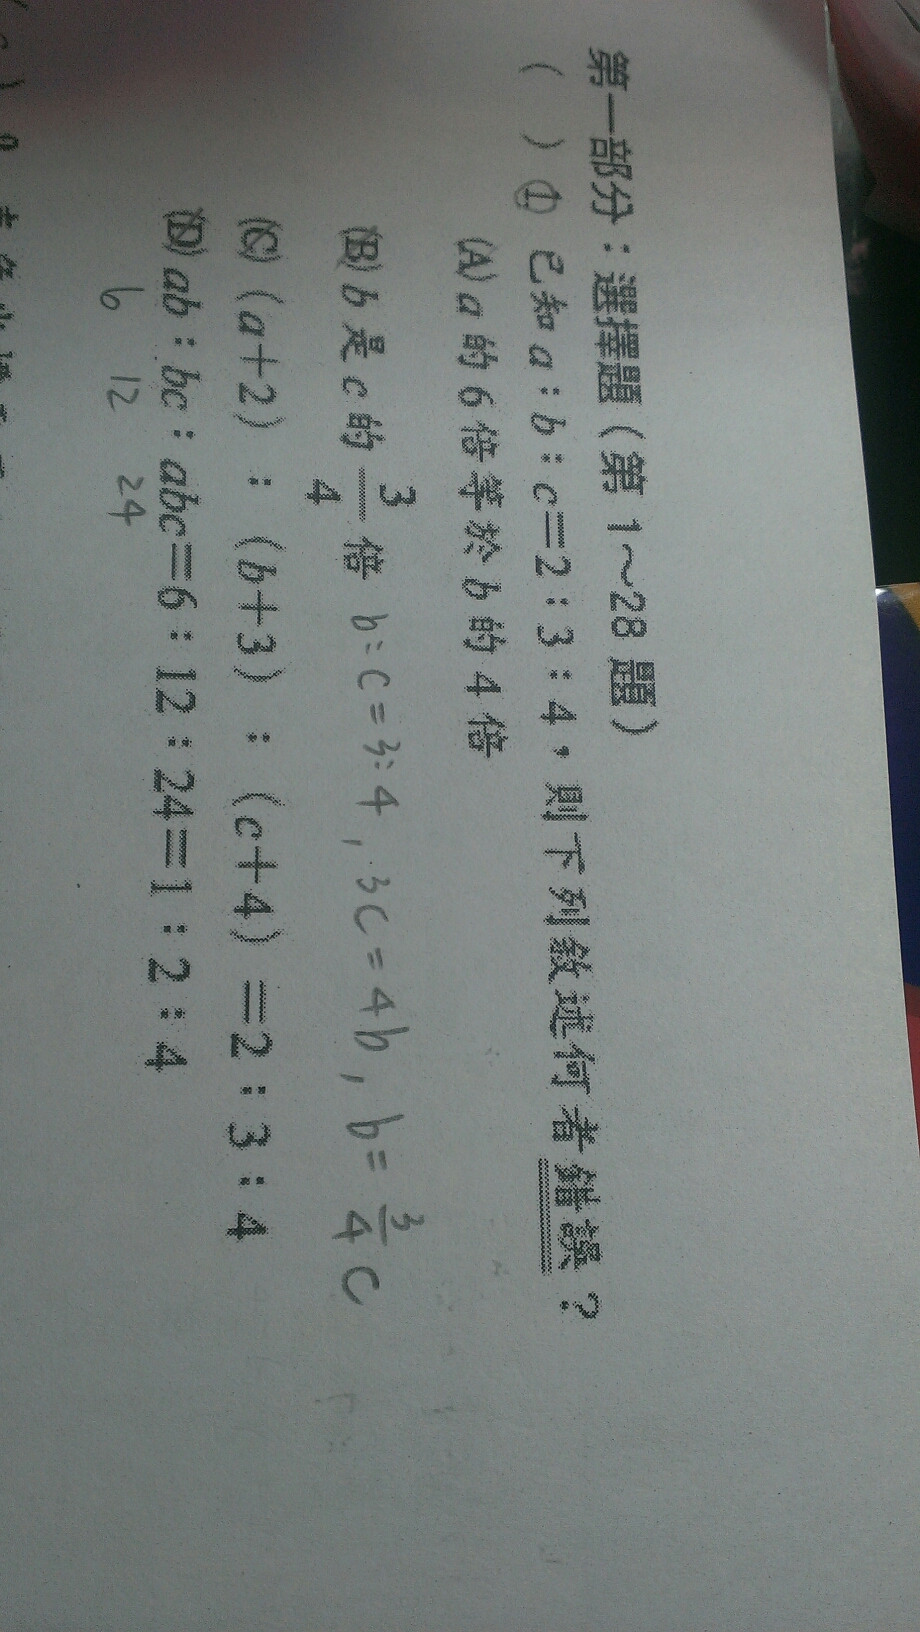 第一部分：選擇題（第 1～28 題）
（ ）① 已知 a：b：c＝2：3：4，則下列敘述何者錯誤？
(A) a 的 6 倍等於 b 的 4 倍
(B) b 是 c 的 3/4 倍 b:c=3:4, 3c=4b, b=3/4c
(C)（a＋2）：（b＋3）：（c＋4）＝2：3：4
(D) ab：bc：abc＝6：12：24＝1：2：4
6 12 24